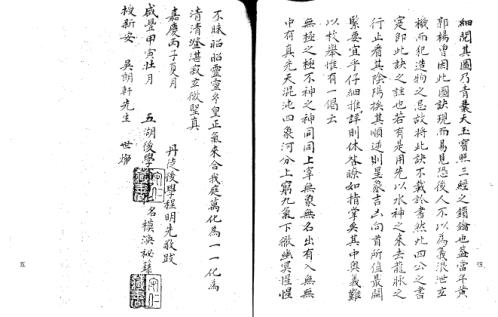 細閱其圖乃青囊天玉寶照三經之鎖鑰也蓋當年黃
郭楊曾因此圖訣現而易見恐後人不以為義洩泄玄
機而犯造物之忌故將此訣不載於書然此四公之書
寔即此訣之註也若有是用先以水神之來去龍脉之
行止看其陰陽挨其順逆則星象吉凶向首所值最關
緊要宜乎仔細推詳則休咎瞭如指掌矣其中奧義難
以枚舉惟有一偈云
無極之極不神之神同同上寧無象無名出有入無無
中有真先天混沌四象河分上窮九氣下徹幽冥惺惺
不昧昭昭靈靈皇正氣來合我庭萬化為一一化為
清清澄湛寂立微聖真
嘉慶丙子夏月
丹陵後學程明先敬跋
咸豐甲寅壯月
五湖後學
名模渙秘錄
授新安 吳朗軒先生 世珍
守仁
守仁